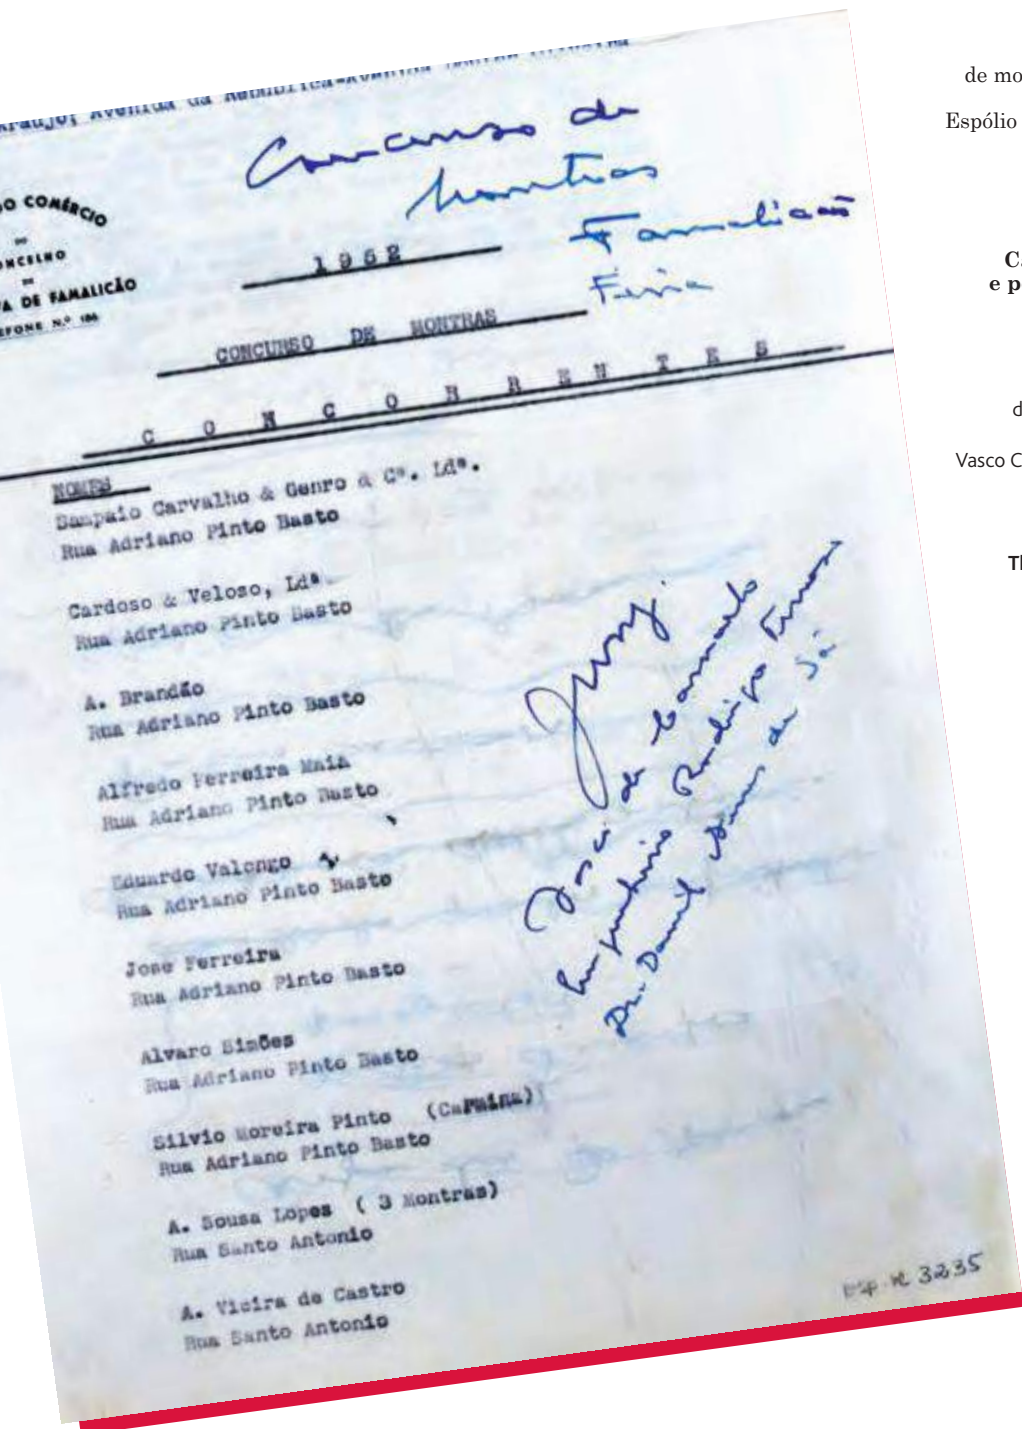 Avenida da República-Avenida
Concurso de
Montras
Famalicão
Feira
DO COMÉRCIO
DO
ONCELHO
DE
VA DE FAMALICÃO
EFONE N.º
1952
CONCURSO DE MONTRAS
C O N C O R R E N T E S
NOMES
Sampaio Carvalho & Genro & Cª. Ldª.
Rua Adriano Pinto Basto
Cardoso & Veloso, Ldª
Rua Adriano Pinto Basto
A. Brandão
Rua Adriano Pinto Basto
Alfredo Ferreira Maia
Rua Adriano Pinto Basto
Eduardo Valongo
Rua Adriano Pinto Basto
Jose Ferreira
Rua Adriano Pinto Basto
Alvaro Simões
Rua Adriano Pinto Basto
Silvio Moreira Pinto
Rua Adriano Pinto Basto
A. Sousa Lopes ( 3 Montras)
Rua Santo Antonio
A. Vieira de Castro
Rua Santo Antonio
Juri
José de
Rodrigo
Dr. Daniel de Sá
3235
de mo
Espólio
C.
e p
d
Vasco C
Tl